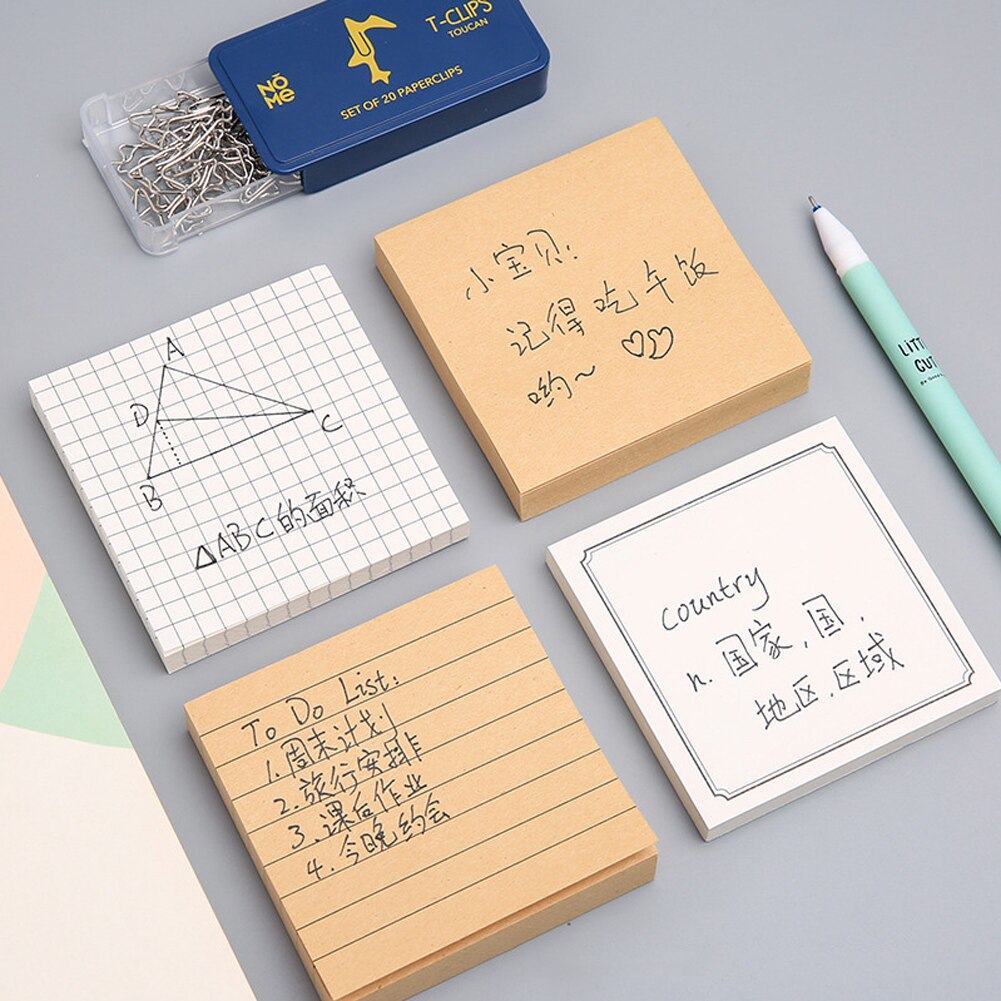 T-CLIPS
TOUCAN
NŌ
Me
SET OF 20 PAPERCLIPS
小宝贝:
记得吃午饭
哟~
A
D
C
B
△ABC的面积
LiTT
CUT
country
n. 国家,国,
地区,区域
To Do List:
1.周末计划
2.旅行安排
3.课后作业
4.今晚约会